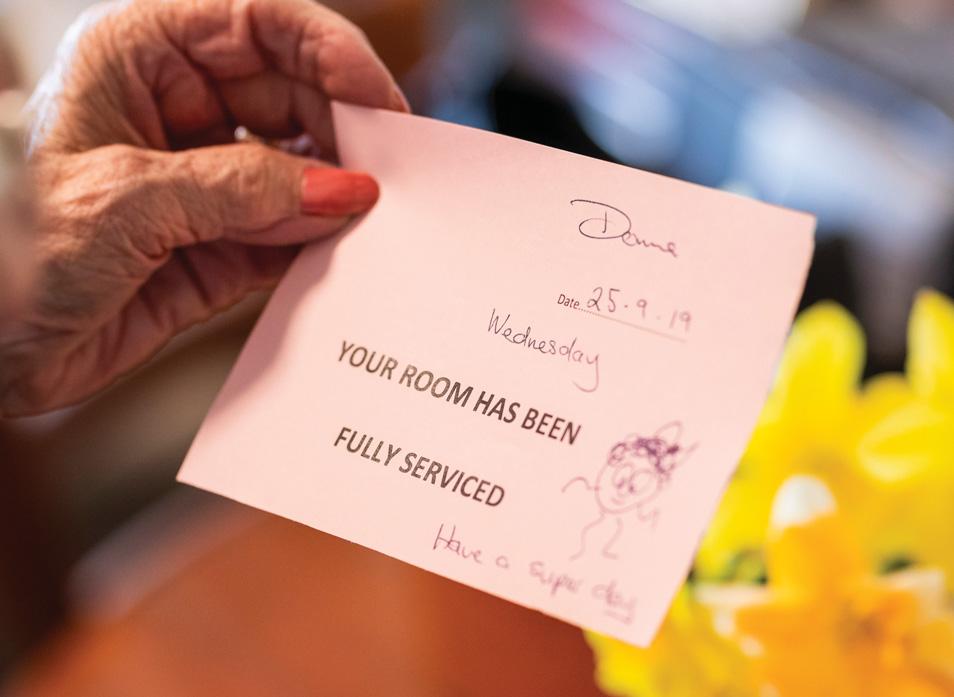 Donna
Date 25.9.19
Wednesday
YOUR ROOM HAS BEEN
FULLY SERVICED
Have a super day